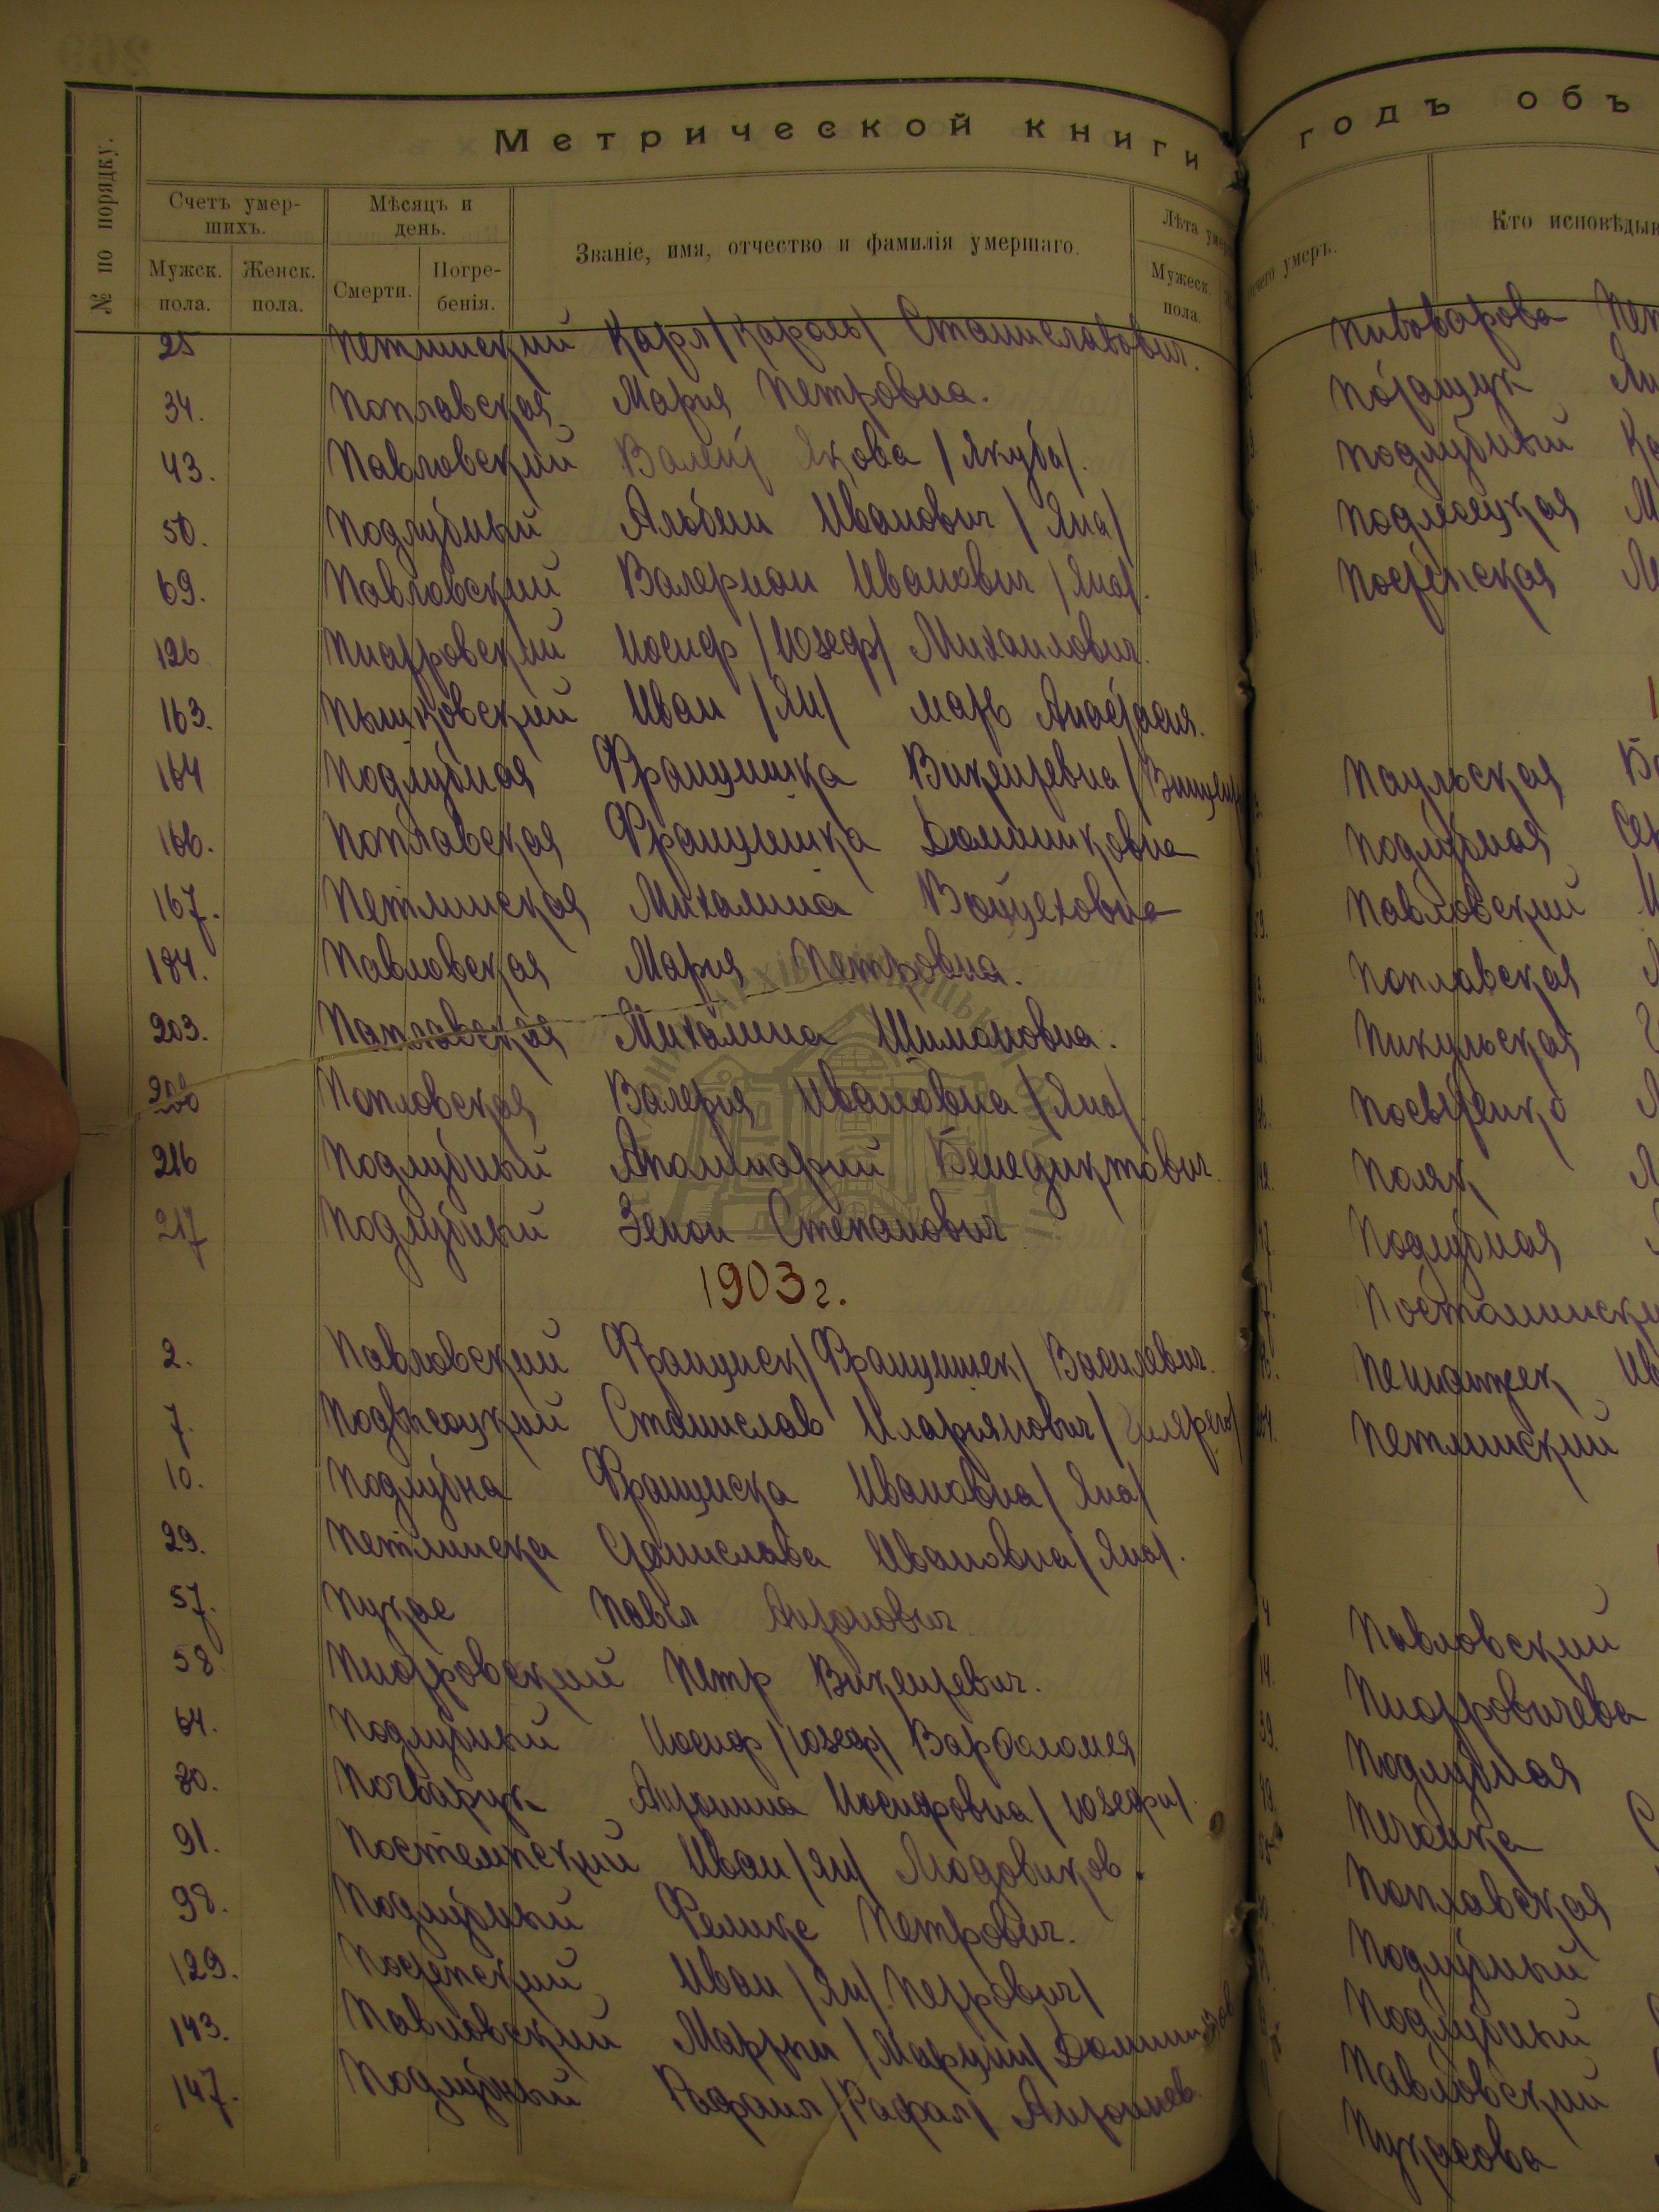 Метрической книги
№ по порядку.
Счетъ умер-
шихъ.
Мужск.
пола.
Женск.
пола.
Мѣсяцъ и
день.
Смерти.
Погре-
бенія.
Званіе, имя, отчество и фамилія умершаго.
Лѣта
Мужеск.
пола.
25 Петлинский Карл /Кароль/ Станиславович.
34. Поплавская Мария Петровна.
43. Павловский Якова /Якуба/.
50. Подлубный Альбин Иванович /Яна/
69. Павловский Валериан Иванович /Яна/.
126 Пиотровский Иосиф /Юзеф/ Михайлович.
163. Пышковский Иван /Ян/ мать Анастасия.
164 Подлубная Францишка Викентевна
166. Поплавская Францишка Доминиковна
167. Петлинская Михалина Войцеховна
184. Павловская Мария Петровна.
203. Поплавская Михалина Шимоновна.
Попловская Валерия Ивановна /Яна/
216 Подлубный Апалинарий Бенедиктович.
217 Подлубный Зенон Степанович
1903 г.
2. Павловский Франциск /Францишек/ Василевич.
7. Подвысоцкий Станислав Илариянович
10. Подлубна Франциска Ивановна /Яна/
29. Петлинска Станислава Ивановна /Яна/.
57. Пукас Павел Антонович
58 Пиотровский Петр Викентевич.
64. Подлубный Иосиф /Юзеф/ Варфоломея
80. Антонина Иосифовна /Юзефы/.
91. Постемпский Иван /Ян/ Людовиков.
98. Подлубный Феликс Петрович.
129. Иван /Ян/ Петрович/
143. Павловский Мартын /Марцин/
147. Подлубный Рафаил /Рафал/ Антониев.
годъ объ
умеръ.
Кто исповѣдыв
Пивоварова
Подлубный
Подлесецкая
Паульская
Подлубная
Павловский
Поплавская
Пикульская
Поляк
Подлубная
Петлинский
Павловский
Подлубная
Поплавская
Подлубный
Подлубный
Павловский
Пукасова